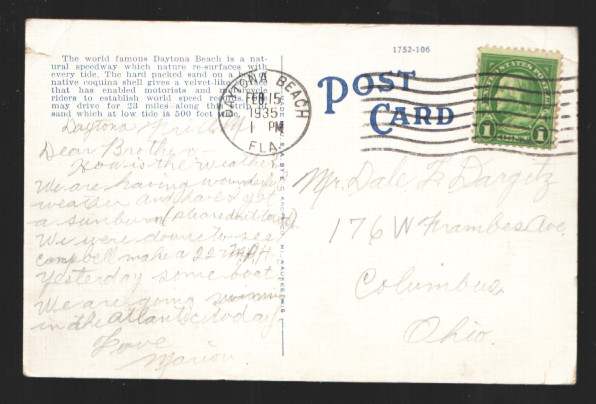 1752-106
The world famous Daytona Beach is a nat-
ural speedway which nature re-surfaces with
every tide. The hard packed sand on a
native coquina shell gives a velvet-like
that has enabled motorists and motorcycle
riders to establish world speed records. One
may drive for 23 miles along this strip of
sand which at low tide is 500 feet wide.
DAYTONA BEACH
FEB 15
1 PM
1935
FLA.
POST
CARD
UNITED STATES POSTAGE
1 1
Daytona Friday
Dear Brother -
How is the weather
We are having wonderful
weather and have I got
a sunburn
We were down to see
Campbell make a 227 M.P.H.
Yesterday some boat
We are going swimming
in the Atlantic today
Love
Marion
Mr. Dale F. Dargitz
176 W Frambes Ave.
Columbus,
Ohio.